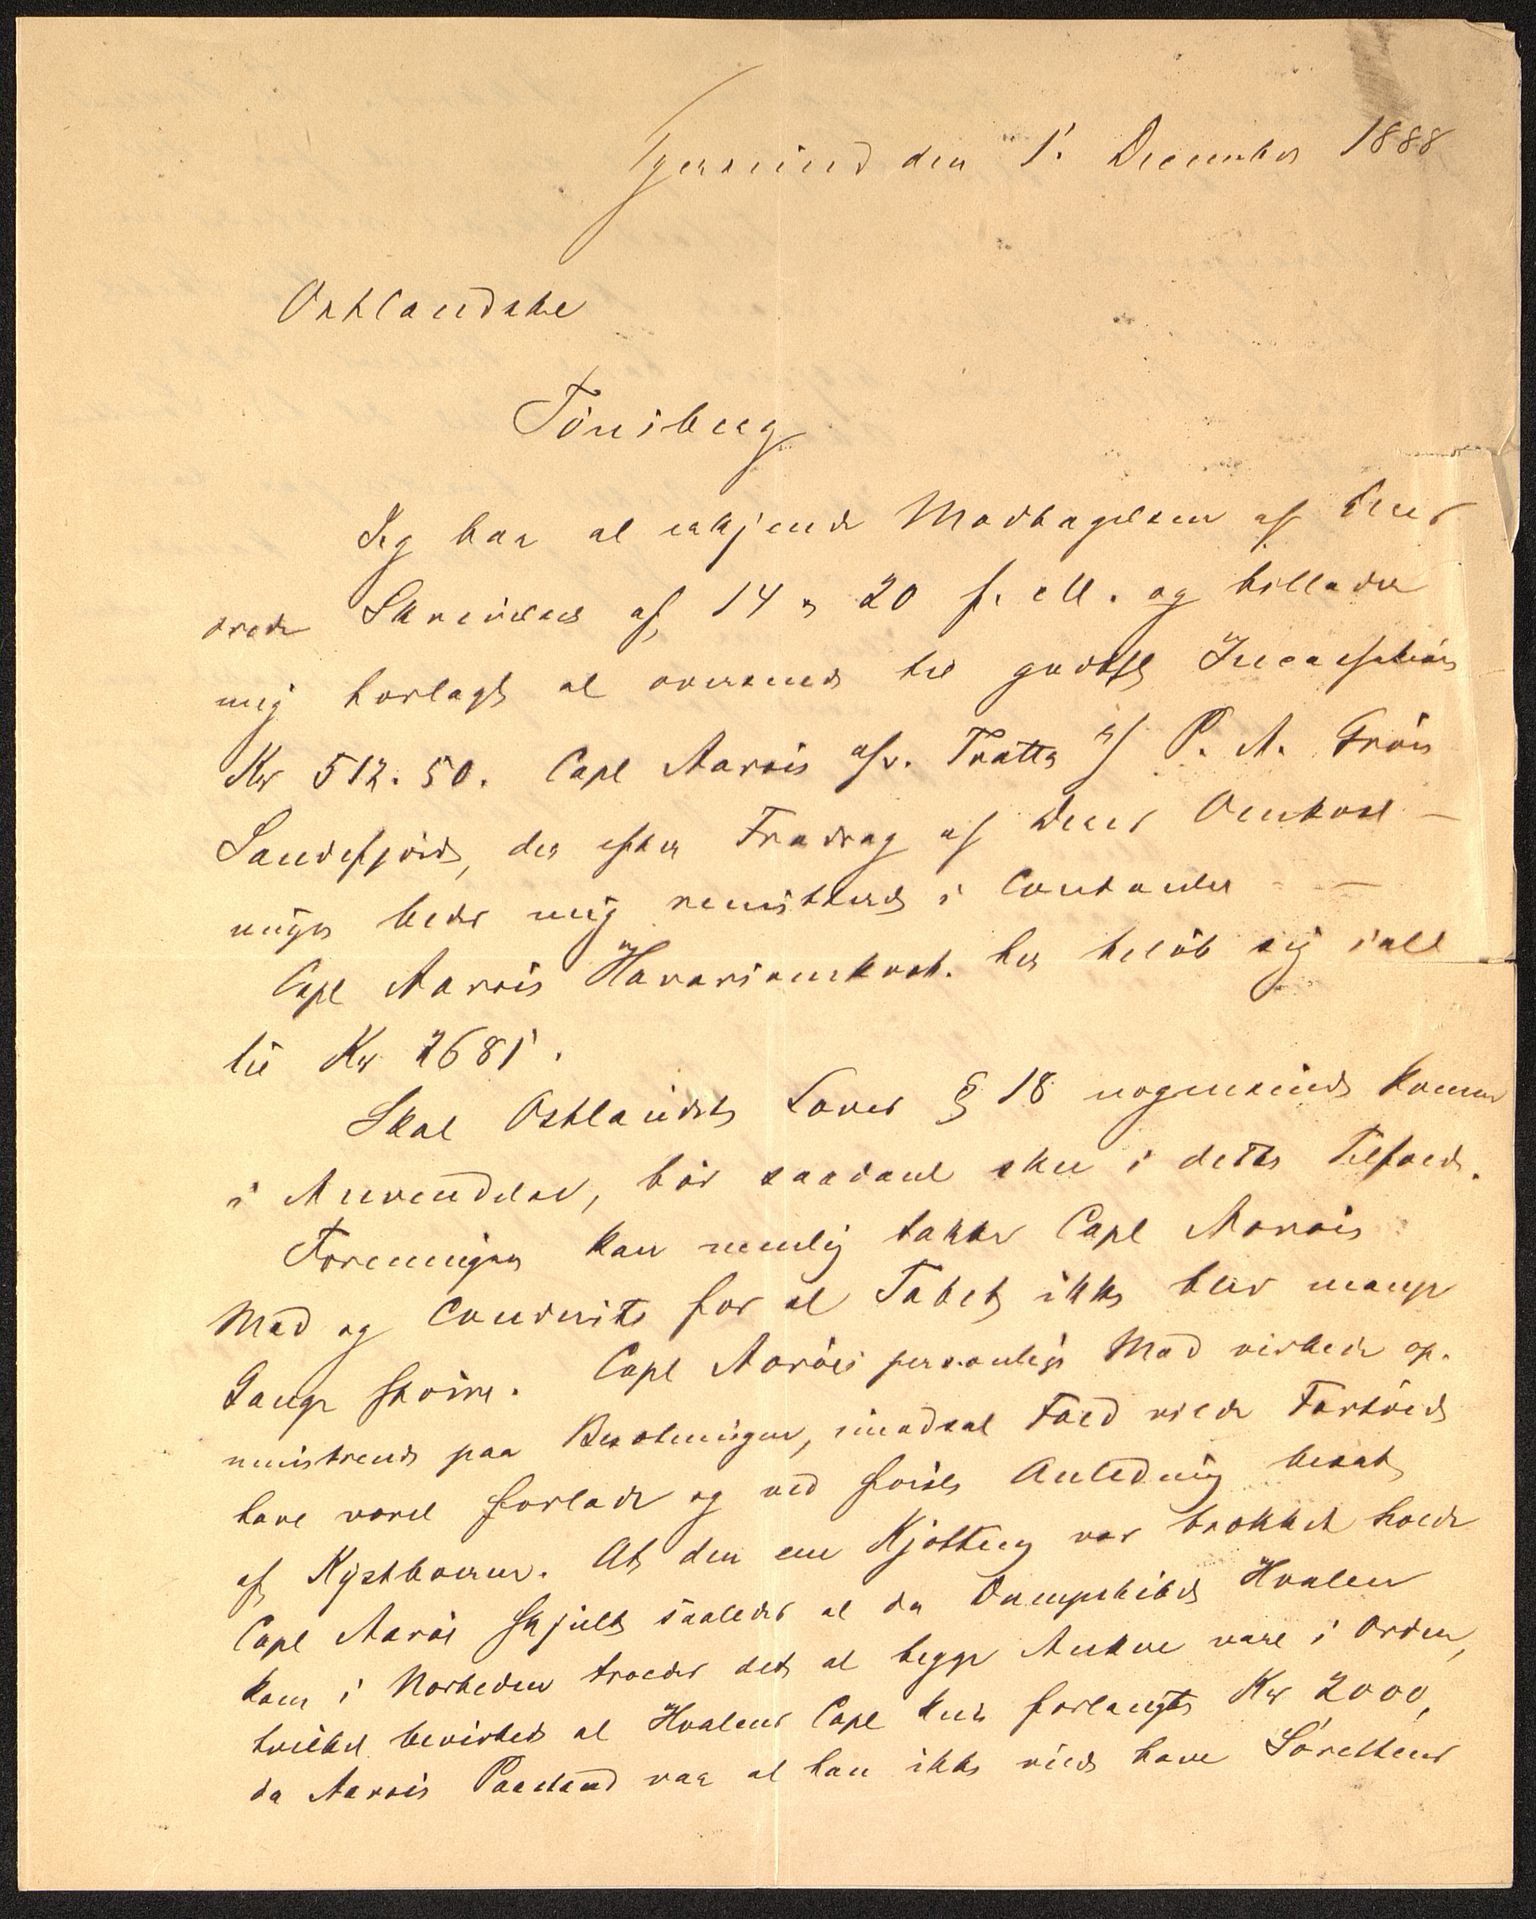 Egersund den 1. December 1888
Østlandske
Tönsberg
Jeg har at erkjende Modtagelsen af Deres
ærede Skrivelser af 14 & 20 f. M. og tillader
mig herlagt at oversende til godhf Incassation
Kr 512.50. Capt Aarøis Tratta P. A. Grøn
Sandefjord, der efter Fradrag af Deres Omkost-
ninger bedes mig remitteret i Contanter
Capt Aarøis Havariomkost. her beløb sig ialt
til Kr 2681.
Skal Østlandets Love § 18 nogensinde komme
i Anvendelse, bör saadant ske i dette Tilfælde.
Foreningen kan nemlig takke Capt Aarøis
Mod og Conduite for at Tabet ikke blev mange
Gange större. Capt Aarøis personlige Mod virkede op-
muntrende paa Besætningen, modsat Fald vilde Fartøiet
have været forladt og ved første Anledning besat
af Kystboerne. At den ene Kjætting var brækket havde
Capt Aarøi skjult saaledes at da Dampskibet Hvalen
kom i Nærheden troede det at begge Ankere vare i Orden,
hvilket bevirkede at Hvalens Capt kun forlangte Kr 2000,
da Aarøis Paastand var at han ikke vilde have Slæbetens